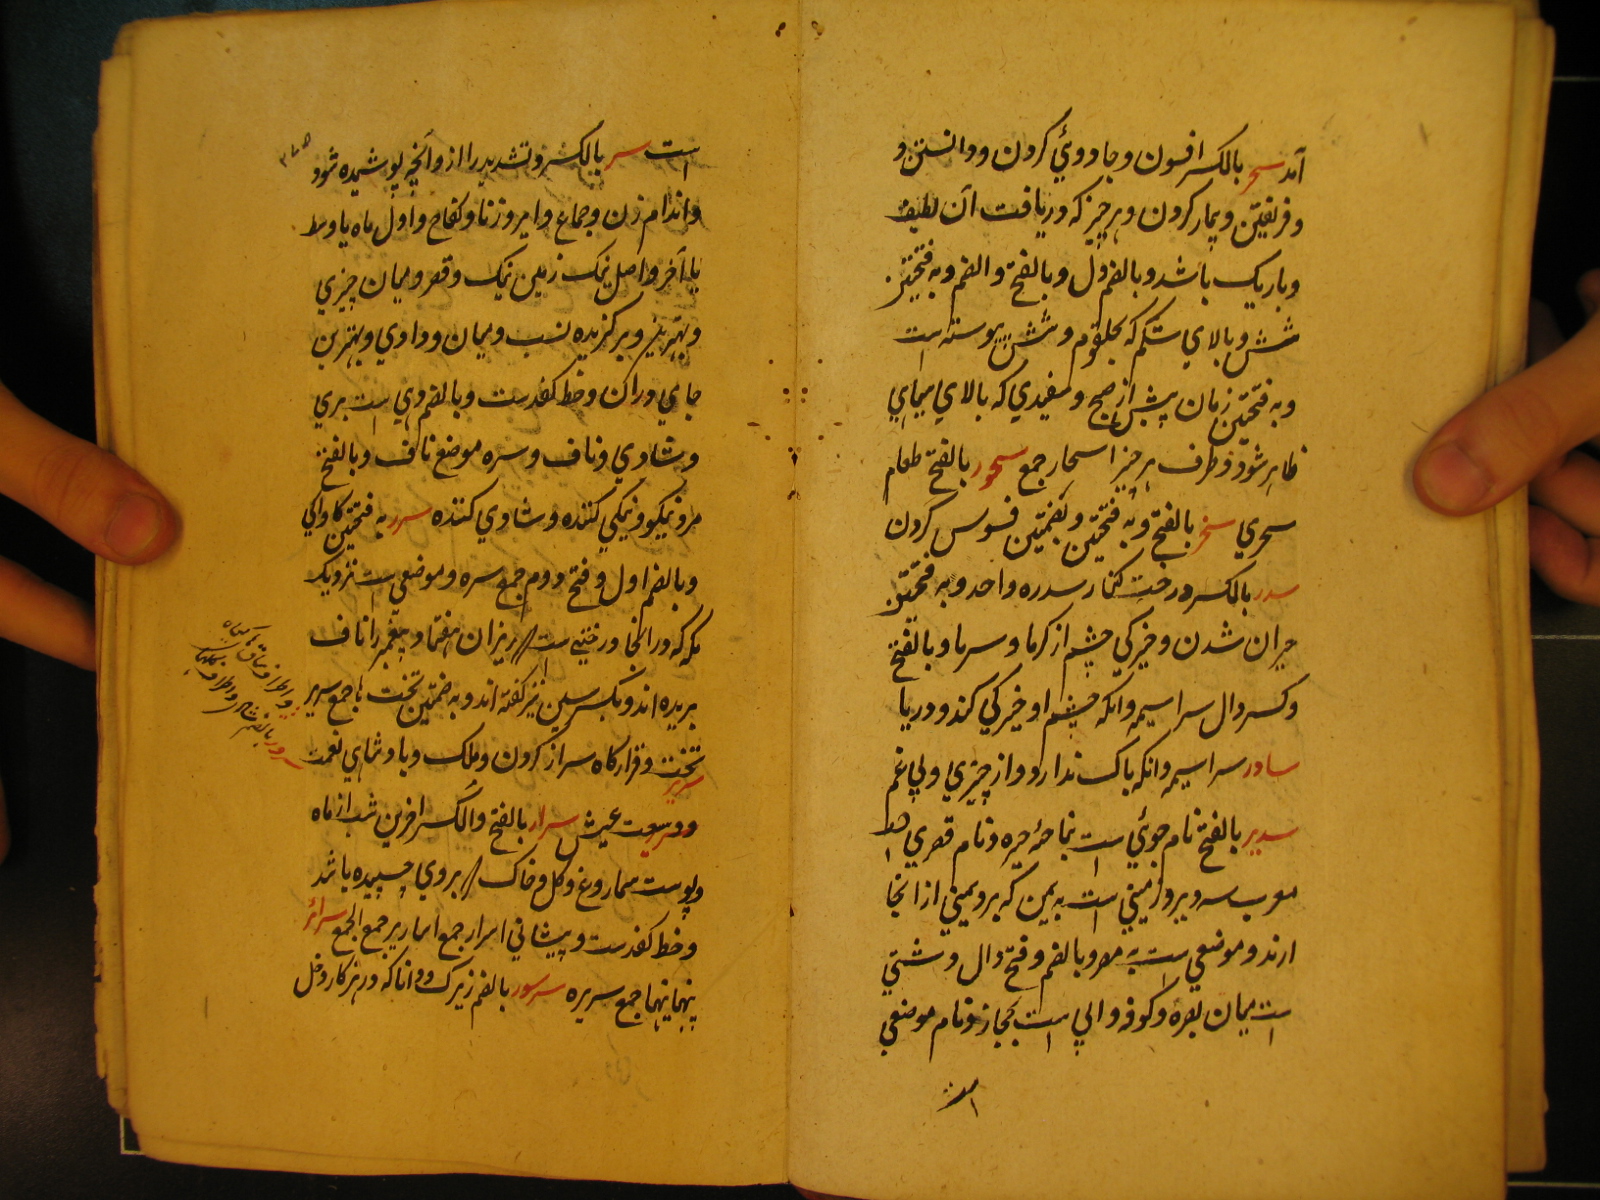 آمد سحر بالکسر افسون و جادوئي کردن و دانستن و
و فریفتن و بیمار کردن و هر چیز که دریافت آن لطیف
و باریک باشد و بالضم دل و بالفتح و الضم و به فتحتین
شش و بالاي شکم که بحلقوم و شش پیوسته است
و به فتحتین زمان پیش از صبح و سفیدي که بالاي سیاهي
ظاهر شود و طرف هر چیز اسحار جمع سحور بالفتح طعام
سحري سخر بالفتح و به فتحتین و بضمتین فسوس کردن
سدر بالکسر درخت کنار سدره واحد و به فتحتین
حیران شدن و خیرگي چشم از گرما و سرما و بالفتح
و کسر دال سراسیمه و آنکه چشم او خیرگي کند و دریا
سادر سراسیمه و آنکه باک ندارد و از چیزي و بي غم
سدیر بالفتح نام جوئي است بناحیه حیره و نام قصري
معرب سه دیر و زمیني است به یمن که برد یمني از آنجا
ارند و موضعي است به مصر و بالضم و فتح دال و شتي
است میان بصره و کوفه و آبي است بحجاز و نام موضعي
است سر بالکسر و تشدید را راز و آنچه پوشیده شود
و اندام زن و جماع و امیر و زنا و نکاح و اول ماه یا وسط
یا آخر و اصل نیک زمین نیک و قعر و میان چیزي
و بهترین و برگزیده نسب و میان وادي و بهترین
جاي دران و خط کفدست و بالضم دهي است بري
و شادي و ناف و سره موضع ناف و بالفتح
مرد نیکو و نیکي کننده و شادي کننده سرر به فتحتین کاواکي
و بالضم اول و فتح دوم جمع سره و موضعي است نزدیک
مکه که در انجا درختي است // زیر آن هفتاد پیغمبر را ناف
بریده اند و بکسر سین نیز گفته اند و به ضمتین تخت ها جمع سریر
سریر تخت و قرارگاه سر از گردن و ملک و بادشاهي نعمت
و وسعت عیش سرار بالفتح و الکسر آخرین شب از ماه
و پوست سماروغ و گل و خاک // بروي چسپیده باشد
و خط کفدست و پیشاني اسرار جمع اساریر جمع الجمع سرائر
پنهانیها جمع سریره سرسور بالضم زیرک و دانا که در هر کار دخل